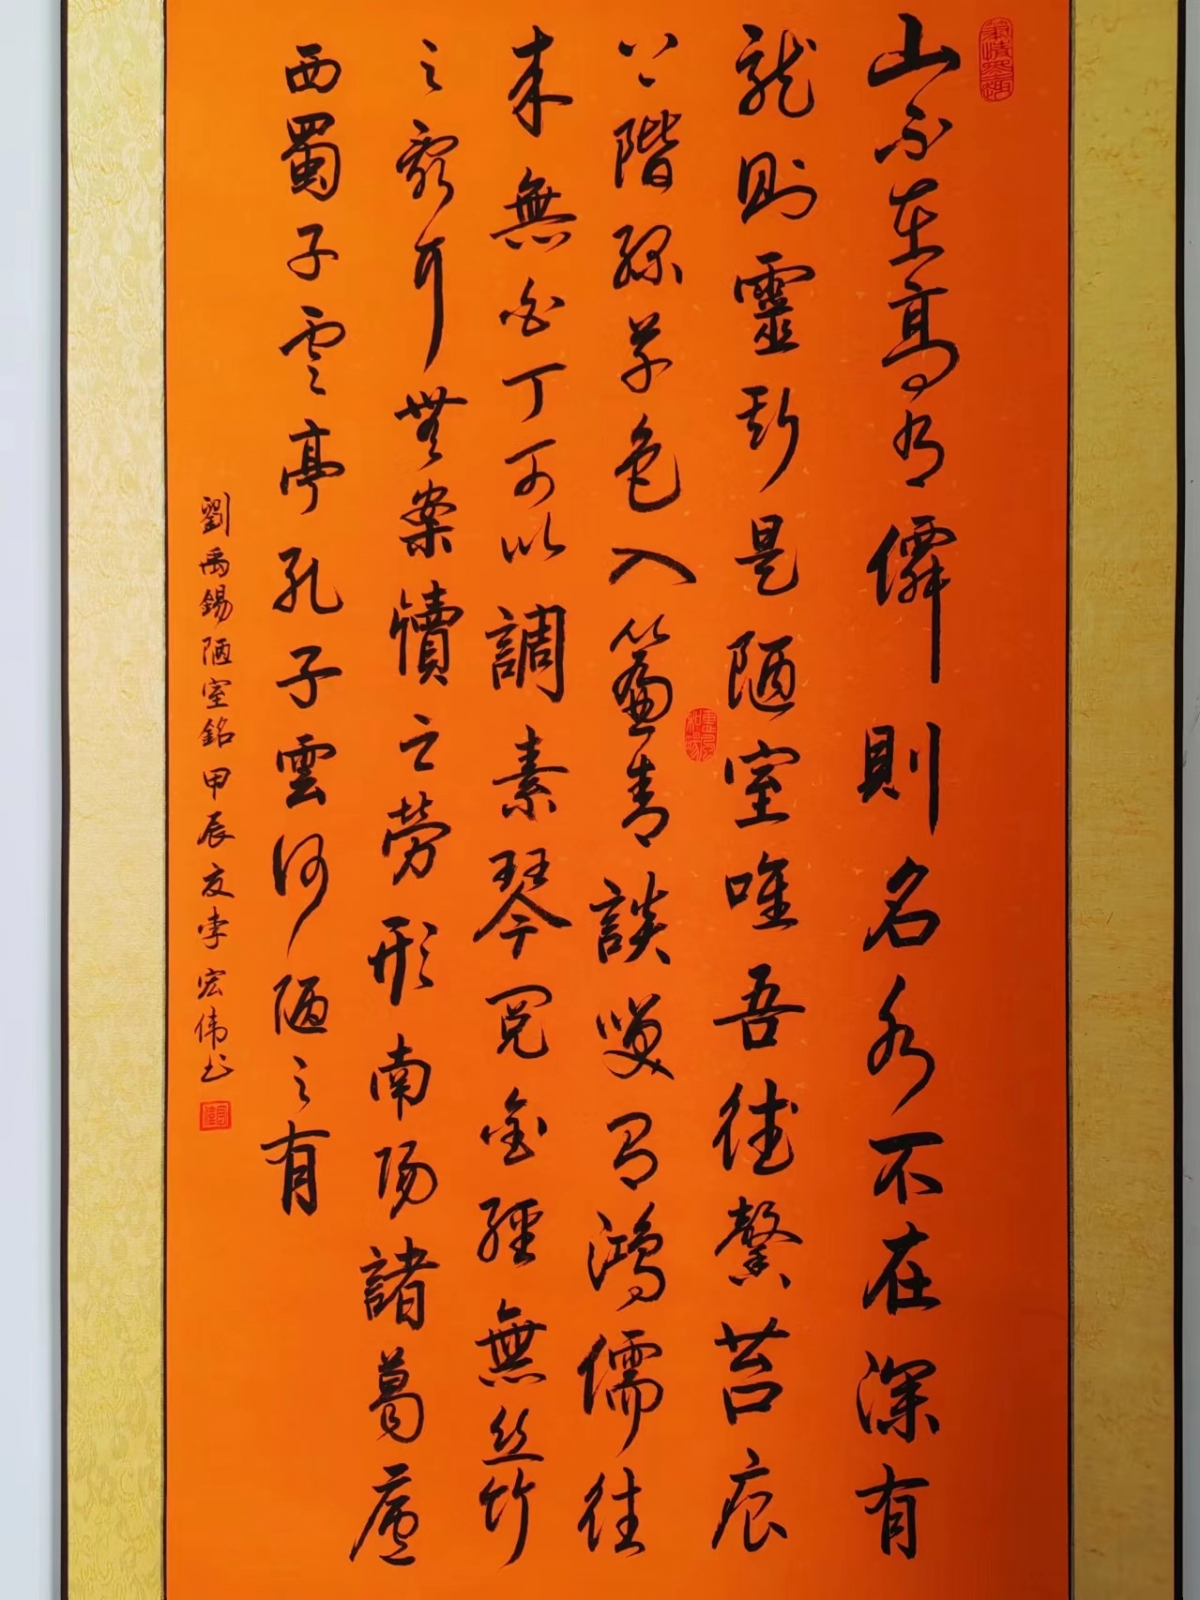 山不在高有僊則名水不在深有
龍則靈斯是陋室唯吾德馨苔痕
上階緑草色入簾青談笑有鴻儒往
来無白丁可以調素琴閲金經無丝竹
之亂耳無案牘之勞形南陽諸葛廬
西蜀子雲亭孔子雲何陋之有
劉禹錫陋室銘甲辰夏李宏伟书